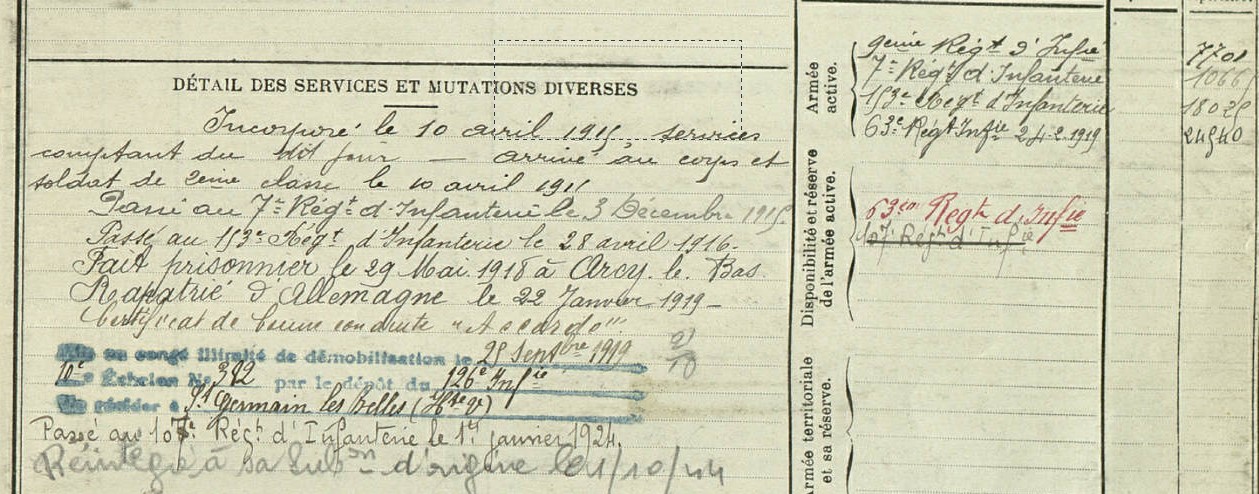 DÉTAIL DES SERVICES ET MUTATIONS DIVERSES
Incorporé le 10 avril 1915, services
comptant du dit jour — arrivé au corps et
soldat de 2eme classe le 10 avril 191
Passé au 7e Régt d'Infanterie le 3 Décembre 1915
Passé au 153e Régt d'Infanterie le 28 avril 1916.
Fait prisonnier le 29 Mai 1918 à Arcy. le. Bas.
Rapatrié d'Allemagne le 22 Janvier 1919 —
Certificat de bonne conduite "Accordé"
Mis en congé illimité de démobilisation le 25 Septbre 1919
10e Échelon No 382 par le dépôt du 126e Infie
Se retirer à St Germain les Belles (Hte V)
Passé au 107e Régt d'Infanterie le 1er janvier 1924.
Réintégré à sa Subon d'origine le 1/10/44
Armée
active.
9eme Régt d'Infie
7e Régt d'Infanterie
153e Régt d'Infanterie
63e Régt Infie 24-2-1919
Disponibilité et réserve
de l'armée active.
63em Regt d'Infie
107e Régt d'Infie
Armée territoriale
et sa réserve.